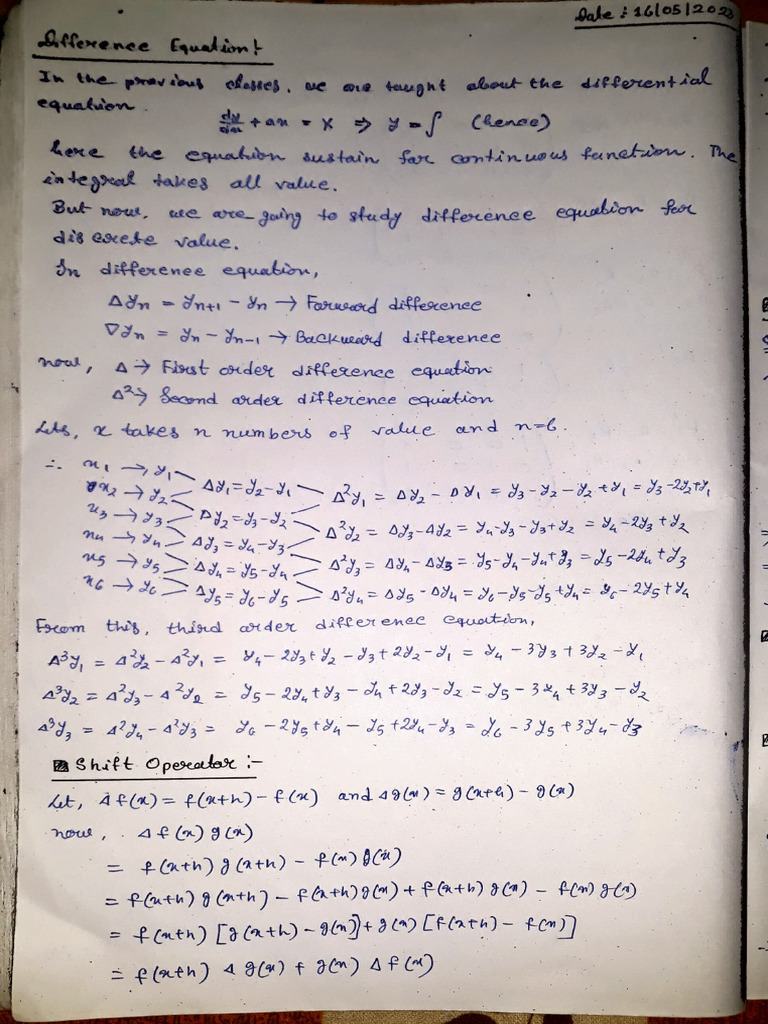 Date : 16/05/2023
Difference Equation :-
In the previous classes, we are taught about the differential
equation.
dy/dx + ax = X ⇒ y = ∫ (hence)
here the equation sustain for continuous function. The
integral takes all value.
But now, we are going to study difference equation for
discrete value.
In difference equation,
Δyn = yn+1 - yn → Forward difference
∇yn = yn - yn-1 → Backward difference
now, Δ → First order difference equation
Δ² → Second order difference equation
Lets, x takes n numbers of value and n=6.
∴ x1 → y1
x2 → y2 Δy1 = y2 - y1 Δ²y1 = Δy2 - Δy1 = y3 - y2 - y2 + y1 = y3 - 2y2 + y1
x3 → y3 Δy2 = y3 - y2 Δ²y2 = Δy3 - Δy2 = y4 - y3 - y3 + y2 = y4 - 2y3 + y2
x4 → y4 Δy3 = y4 - y3 Δ²y3 = Δy4 - Δy3 = y5 - y4 - y4 + y3 = y5 - 2y4 + y3
x5 → y5 Δy4 = y5 - y4 Δ²y4 = Δy5 - Δy4 = y6 - y5 - y5 + y4 = y6 - 2y5 + y4
x6 → y6 Δy5 = y6 - y5
From this, third order difference equation,
Δ³y1 = Δ²y2 - Δ²y1 = y4 - 2y3 + y2 - y3 + 2y2 - y1 = y4 - 3y3 + 3y2 - y1
Δ³y2 = Δ²y3 - Δ²y2 = y5 - 2y4 + y3 - y4 + 2y3 - y2 = y5 - 3y4 + 3y3 - y2
Δ³y3 = Δ²y4 - Δ²y3 = y6 - 2y5 + y4 - y5 + 2y4 - y3 = y6 - 3y5 + 3y4 - y3
Shift Operator :-
Let, Δf(x) = f(x+h) - f(x) and Δg(x) = g(x+h) - g(x)
now, Δf(x) g(x)
= f(x+h) g(x+h) - f(x) g(x)
= f(x+h) g(x+h) - f(x+h) g(x) + f(x+h) g(x) - f(x) g(x)
= f(x+h) [g(x+h) - g(x)] + g(x) [f(x+h) - f(x)]
= f(x+h) Δg(x) + g(x) Δf(x)